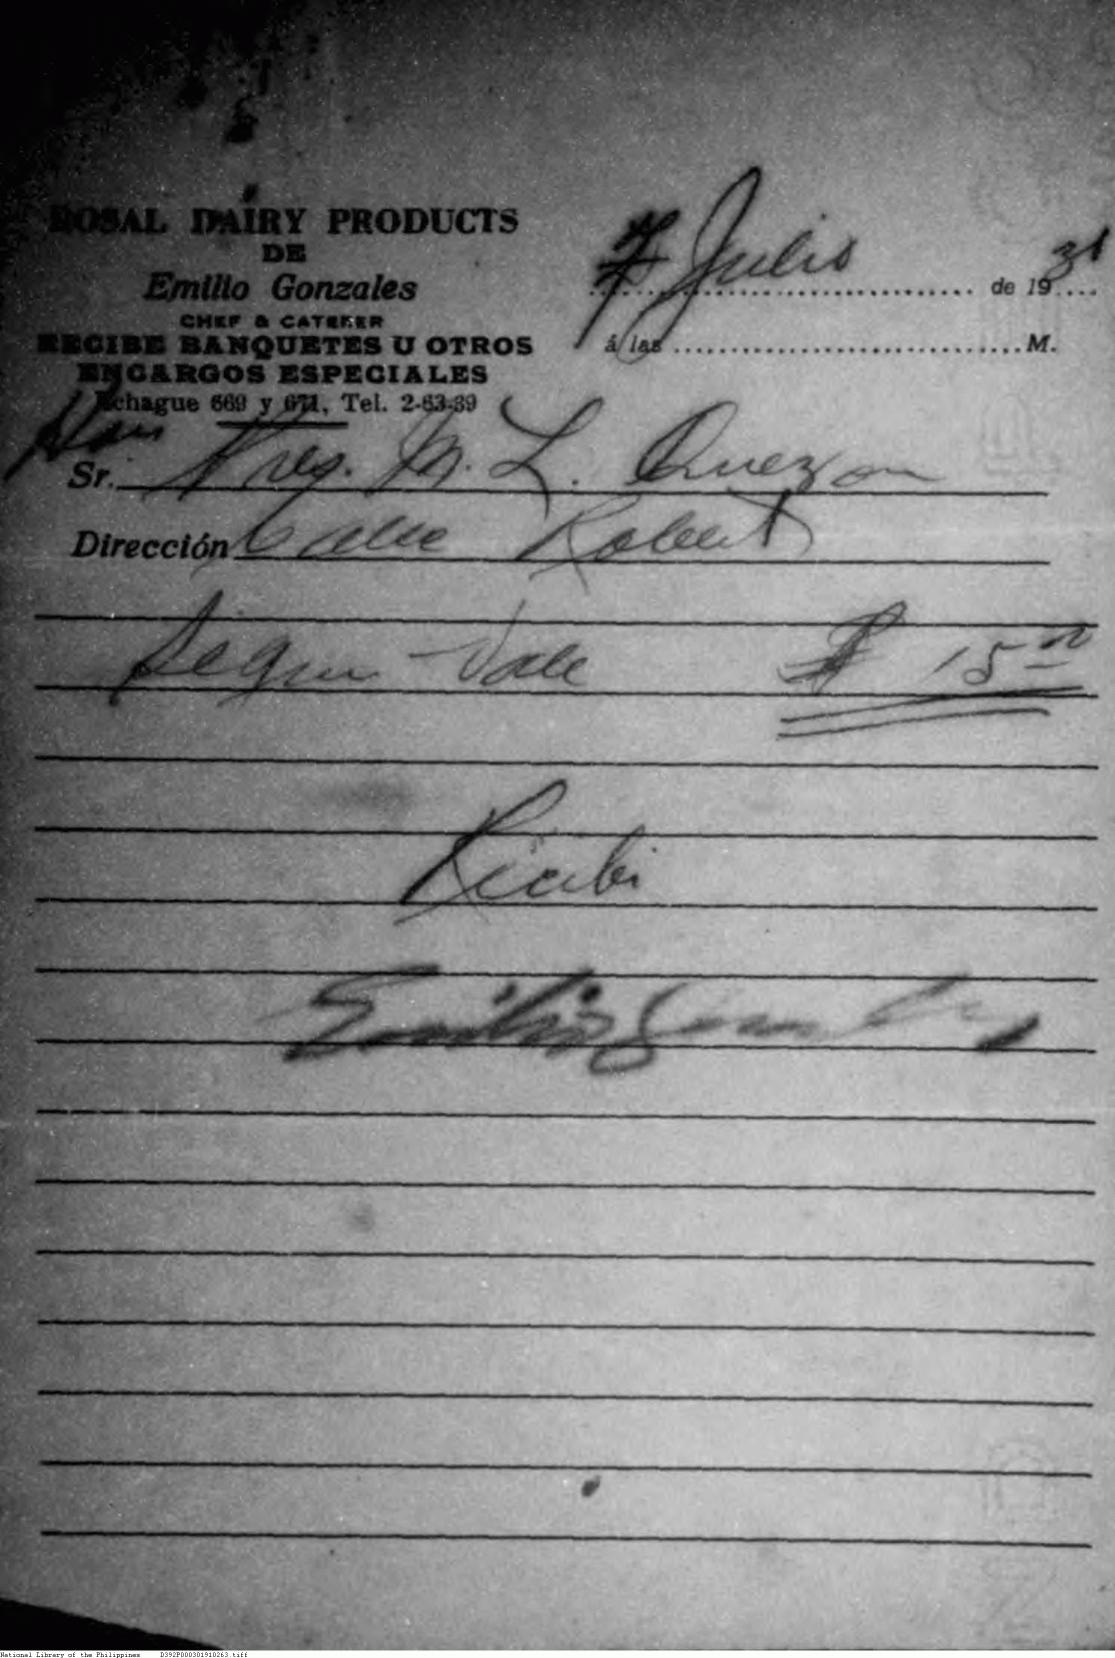 ROSAL DAIRY PRODUCTS
DE
Emilio Gonzales
CHEF & CATERER
RECIBE BANQUETES U OTROS
ENCARGOS ESPECIALES
Echague 669 y 671, Tel. 2-63-39
7 Julio de 1931
á las M.
Hon
Sr. Pres. M. L. Quezon
Dirección Calle Robert
Segun Vale ₱ 15.00
Recibi
Emilio Gonzales
National Library of the Philippines D392P000301910263.tiff